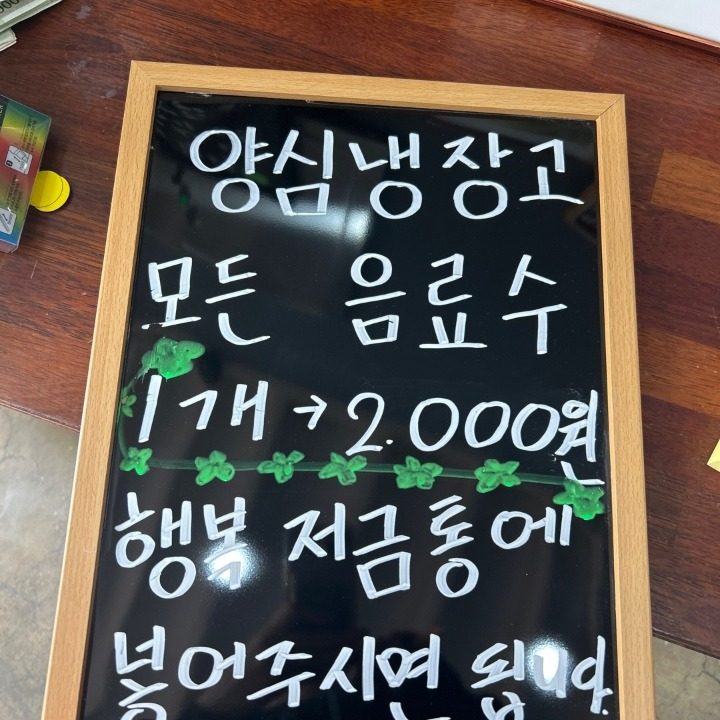 양심냉장고
모든 음료수
1개→2.000원
행복 저금통에
넣어주시면 됩니다.